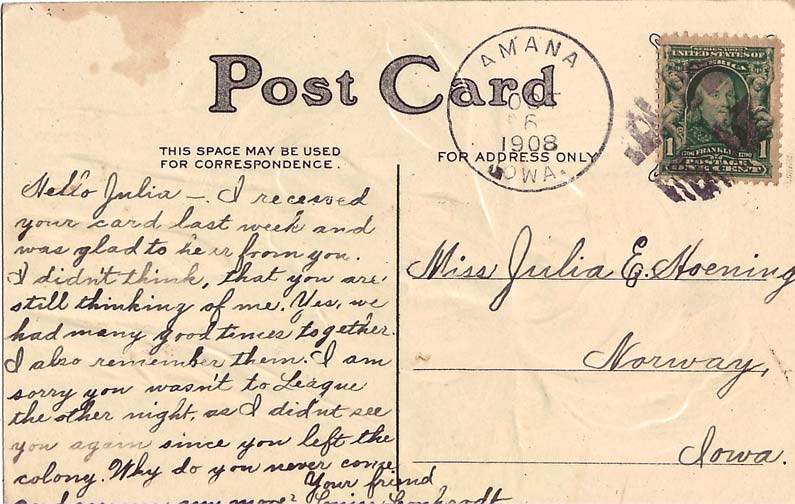 Post Card
AMANA
OCT
6
1908
IOWA.
SERIES 1902
UNITED STATES OF
AMERICA
1 1706 FRANKLIN 1790 1
POSTAGE
ONE CENT
THIS SPACE MAY BE USED
FOR CORRESPONDENCE.
FOR ADDRESS ONLY
Hello Julia —. I receeved
your card last week and
was glad to hear from you.
I didn't think, that you are
still thinking of me. Yes, we
had many good times together.
I also remember them. I am
sorry you wasn't to League
the other night, as I didn't see
you again since you left the
colony. Why do you never come
any more? Your friend
Miss Julia E. Hoening
Norway,
Iowa.